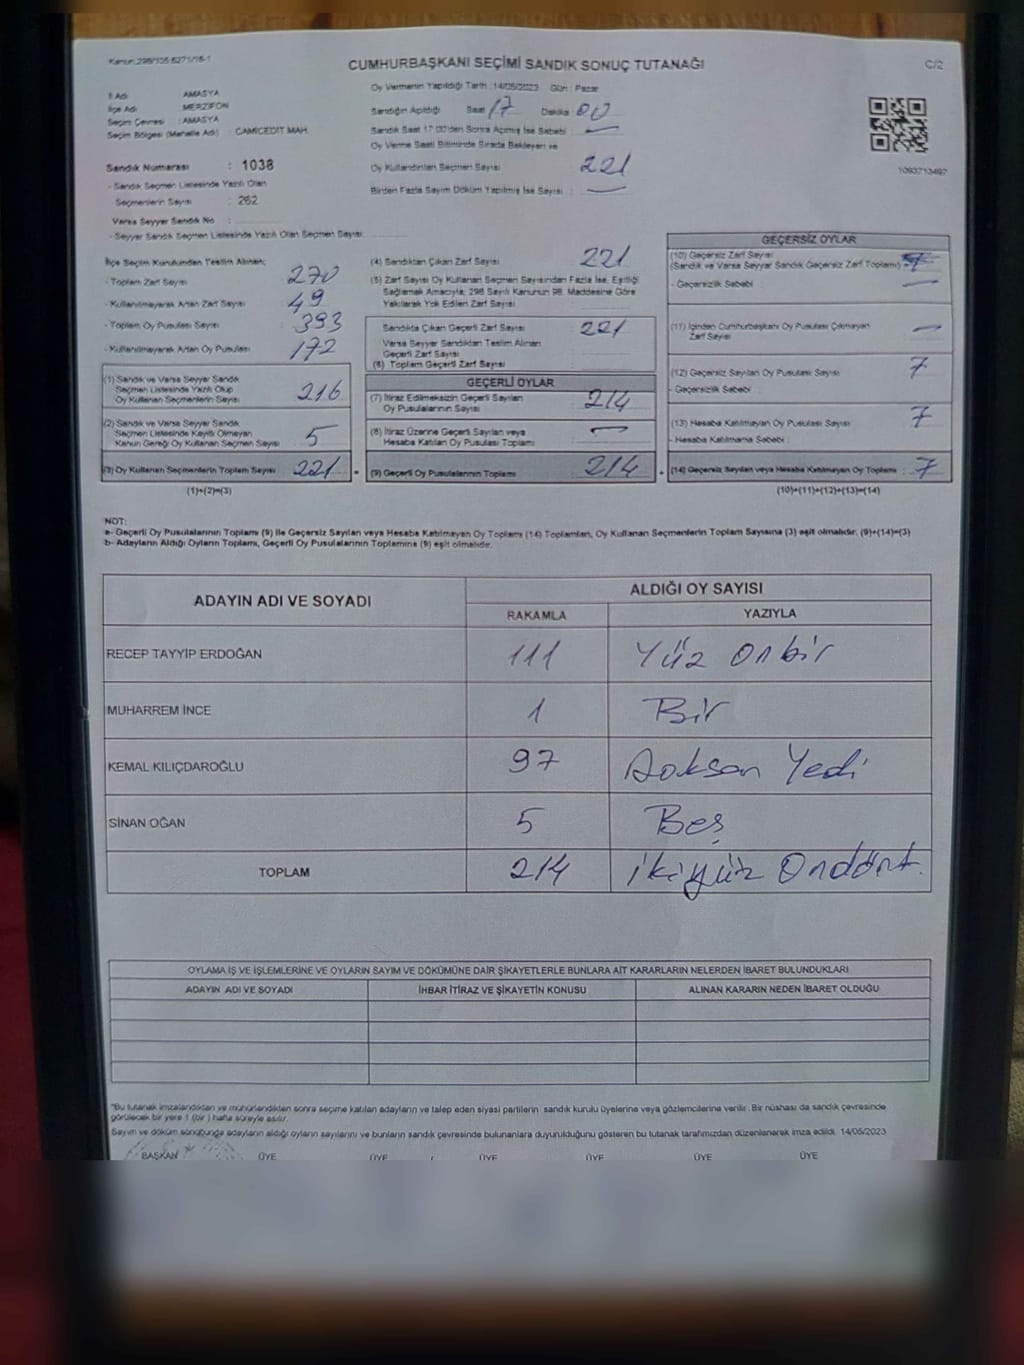 Kanun:298/105 6271/15-1
CUMHURBAŞKANI SEÇİMİ SANDIK SONUÇ TUTANAĞI
C/2
İl Adı AMASYA
İlçe Adı MERZİFON
Seçim Çevresi : AMASYA
Seçim Bölgesi (Mahalle Adı) : CAMİCEDİT MAH.
Sandık Numarası : 1038
- Sandık Seçmen Listesinde Yazılı Olan
Seçmenlerin Sayısı : 262
Varsa Seyyar Sandık No :
- Seyyar Sandık Seçmen Listesinde Yazılı Olan Seçmen Sayısı
Oy Vermenin Yapıldığı Tarih : 14/05/2023 Gün : Pazar
Sandığın Açıldığı Saat 17 Dakika : 00
Sandık Saat 17:00'den Sonra Açılmış İse Sebebi : —
Oy Verme Saati Bitiminde Sırada Bekleyen ve
Oy Kullandırılan Seçmen Sayısı 221
Birden Fazla Sayım Döküm Yapılmış İse Sayısı : —
1093713497
İlçe Seçim Kurulundan Teslim Alınan;
- Toplam Zarf Sayısı 270
- Kullanılmayarak Artan Zarf Sayısı 49
- Toplam Oy Pusulası Sayısı 393
- Kullanılmayarak Artan Oy Pusulası 172
(1) Sandık ve Varsa Seyyar Sandık
Seçmen Listesinde Yazılı Olup
Oy Kullanan Seçmenlerin Sayısı 216
(2) Sandık ve Varsa Seyyar Sandık
Seçmen Listesinde Kayıtlı Olmayan
Kanun Gereği Oy Kullanan Seçmen Sayısı 5
(3) Oy Kullanan Seçmenlerin Toplam Sayısı 221
(1)+(2)=(3)
(4) Sandıktan Çıkan Zarf Sayısı 221
(5) Zarf Sayısı Oy Kullanan Seçmen Sayısından Fazla İse, Eşitliği
Sağlamak Amacıyla; 298 Sayılı Kanunun 98. Maddesine Göre
Yakılarak Yok Edilen Zarf Sayısı
Sandıkta Çıkan Geçerli Zarf Sayısı 221
Varsa Seyyar Sandıktan Teslim Alınan
Geçerli Zarf Sayısı
(6) Toplam Geçerli Zarf Sayısı
GEÇERLİ OYLAR
(7) İtiraz Edilmeksizin Geçerli Sayılan
Oy Pusulalarının Sayısı 214
(8) İtiraz Üzerine Geçerli Sayılan veya
Hesaba Katılan Oy Pusulası Toplamı —
(9) Geçerli Oy Pusulalarının Toplamı 214
GEÇERSİZ OYLAR
(10) Geçersiz Zarf Sayısı
(Sandık ve Varsa Seyyar Sandık Geçersiz Zarf Toplamı)
- Geçersizlik Sebebi : —
(11) İçinden Cumhurbaşkanı Oy Pusulası Çıkmayan
Zarf Sayısı —
(12) Geçersiz Sayılan Oy Pusulası Sayısı 7
- Geçersizlik Sebebi :
(13) Hesaba Katılmayan Oy Pusulası Sayısı 7
- Hesaba Katılmama Sebebi :
(14) Geçersiz Sayılan veya Hesaba Katılmayan Oy Toplamı : 7
(10)+(11)+(12)+(13)=(14)
NOT:
a- Geçerli Oy Pusulalarının Toplamı (9) ile Geçersiz Sayılan veya Hesaba Katılmayan Oy Toplamı (14) Toplamları, Oy Kullanan Seçmenlerin Toplam Sayısına (3) eşit olmalıdır. (9)+(14)=(3)
b- Adayların Aldığı Oyların Toplamı, Geçerli Oy Pusulalarının Toplamına (9) eşit olmalıdır.
ADAYIN ADI VE SOYADI ALDIĞI OY SAYISI
RAKAMLA YAZIYLA
RECEP TAYYİP ERDOĞAN 111 Yüz Onbir
MUHARREM İNCE 1 Bir
KEMAL KILIÇDAROĞLU 97 Doksan Yedi
SİNAN OĞAN 5 Beş
TOPLAM 214 ikiyüz Ondört.
OYLAMA İŞ VE İŞLEMLERİNE VE OYLARIN SAYIM VE DÖKÜMÜNE DAİR ŞİKAYETLERLE BUNLARA AİT KARARLARIN NELERDEN İBARET BULUNDUKLARI
ADAYIN ADI VE SOYADI İHBAR İTİRAZ VE ŞİKAYETİN KONUSU ALINAN KARARIN NEDEN İBARET OLDUĞU
"Bu tutanak imzalandıktan ve mühürlendikten sonra seçime katılan adayların ve talep eden siyasi partilerin sandık kurulu üyelerine veya gözlemcilerine verilir. Bir nüshası da sandık çevresinde
görülecek bir yere 1 (bir) hafta süreyle asılır.
Sayım ve döküm sonucunda adayların aldığı oyların sayılarını ve bunların sandık çevresinde bulunanlara duyurulduğunu gösteren bu tutanak tarafımızdan düzenlenerek imza edildi. 14/05/2023
BAŞKAN ÜYE ÜYE ÜYE ÜYE ÜYE ÜYE